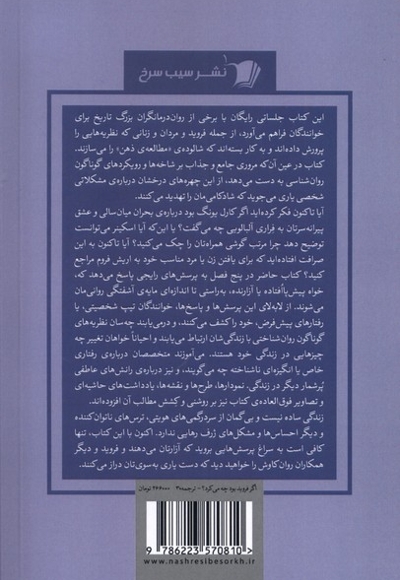 نشر سیب سرخ
این کتاب جلساتی رایگان با برخی از روان‌درمانگران بزرگ تاریخ برای
خوانندگان فراهم می‌آورد، از جمله فروید و مردان و زنانی که نظریه‌هایی را
پرورش داده‌اند و به کار بسته‌اند که شالوده‌ی «مطالعه‌ی ذهن» را می‌سازند.
کتاب در عین آن‌که مروری جامع و جذاب بر شاخه‌ها و رویکردهای گوناگون
روان‌شناسی به دست می‌دهد، از این چهره‌های درخشان درباره‌ی مشکلاتی
شخصی یاری می‌جوید که شادکامی‌مان را تهدید می‌کنند.
آیا تاکنون فکر کرده‌اید اگر کارل یونگ بود درباره‌ی بحران میان‌سالی و عشق
پیرانه‌سرتان به فِراری آلبالویی چه می‌گفت؟ یا این‌که آیا اسکینر می‌توانست
توضیح دهد چرا مرتب گوشی همراه‌تان را چک می‌کنید؟ آیا تاکنون به این
صرافت افتاده‌اید که برای یافتن زن یا مرد مناسب خود به اریش فروم مراجع
کنید؟ کتاب حاضر در پنج فصل به پرسش‌های رایجی پاسخ می‌دهد که،
خواه پیش‌پاافتاده یا آزارنده، به‌راستی تا اندازه‌ای مایه‌ی آشفتگی روانی‌مان
می‌شوند. از لابه‌لای این پرسش‌ها و پاسخ‌ها، خوانندگان تیپ شخصیتی، یا
رفتارهای پیش‌فرض، خود را کشف می‌کنند، و درمی‌یابند چه‌سان نظریه‌های
گوناگون روان‌شناختی با زندگی‌شان ارتباط می‌یابند و احیاناً خواهان تغییر چه
چیزهایی در زندگی خود هستند. می‌آموزند متخصصان درباره‌ی رفتاری
خاص یا انگیزه‌ای ناشناخته چه می‌گویند، و نیز درباره‌ی رانش‌های عاطفی
پُرشمار دیگر در زندگی. نمودارها، طرح‌ها و نقشه‌ها، یادداشت‌های حاشیه‌ای
و تصاویر فوق‌العاده‌ی کتاب نیز بر روشنی و کشش مطالب آن افزوده‌اند.
زندگی ساده نیست و بی‌گمان از سردرگمی‌های هویتی، ترس‌های ناتوان‌کننده
و دیگر احساس‌ها و مشکل‌های ژرف رهایی ندارد. اکنون با این کتاب، تنها
کافی است به سراغ پرسش‌هایی بروید که آزارتان می‌دهند و فروید و دیگر
همکاران روان‌کاوش را خواهید دید که دست یاری به‌سوی‌تان دراز می‌کنند.
اگر فروید بود چه می‌کرد؟ - ترجمه ۳۰ ۲۶۶۰۰۰ تومان
9 786223 570810 >
www.nashresibesorkh.com